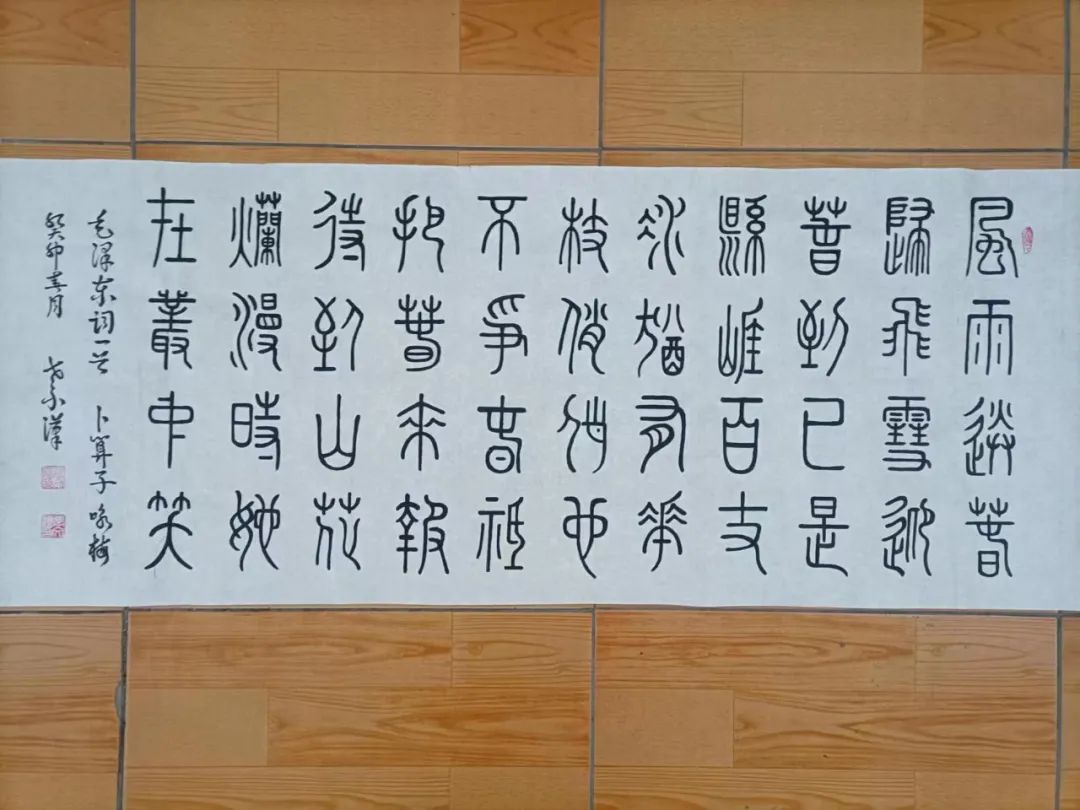 風雨送春
歸飛雪迎
春到已是
縣崖百丈
冰猶有華
枝俏俏也
不爭春祇
把春來報
待到山花
爛漫時她
在叢中笑
毛泽东词一首 卜算子 咏梅
癸卯春月